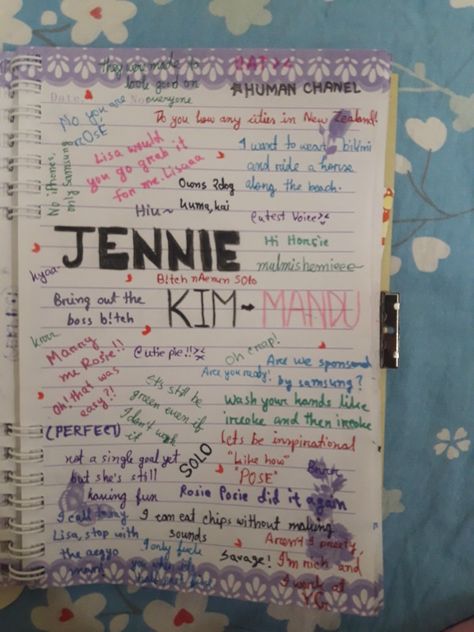 they were made to
look good on
everyone
#HUMAN CHANEL
Date
No
No you are
ROSÉ
Do you how any cities in New Zealand!
Lisa would
you go grab it
for me Lisaaa
I want to wear bikini
and ride a horse
along the beach.
No iPhones,
only Samsung
Owns 2dog
kuma, kai
Hiii~
Cutest Voice
JENNIE
Hi Honsie
hyaa~
B!tch nAemun SOlo
Bring out the
boss b!tch
KIM-MANDU
krrr
Marry
me Rosie!!
Cutie pie!!
Oh crap!
Are you ready!
Are we sponsored
by samsung?
Oh! that was
easy?!
Let's still be
green even if
I don't work
it
Wash your hands like
invoke and then invoke
(PERFECT)
lets be inspirational
"Like how"
"POSE"
SOLO
not a single goal yet
but she's still
having fun
Rosie Posie did it again
I can eat chips without making
sounds
Lisa, stop with
the aegyo
Savage!
I'm rich and
I work at
YG